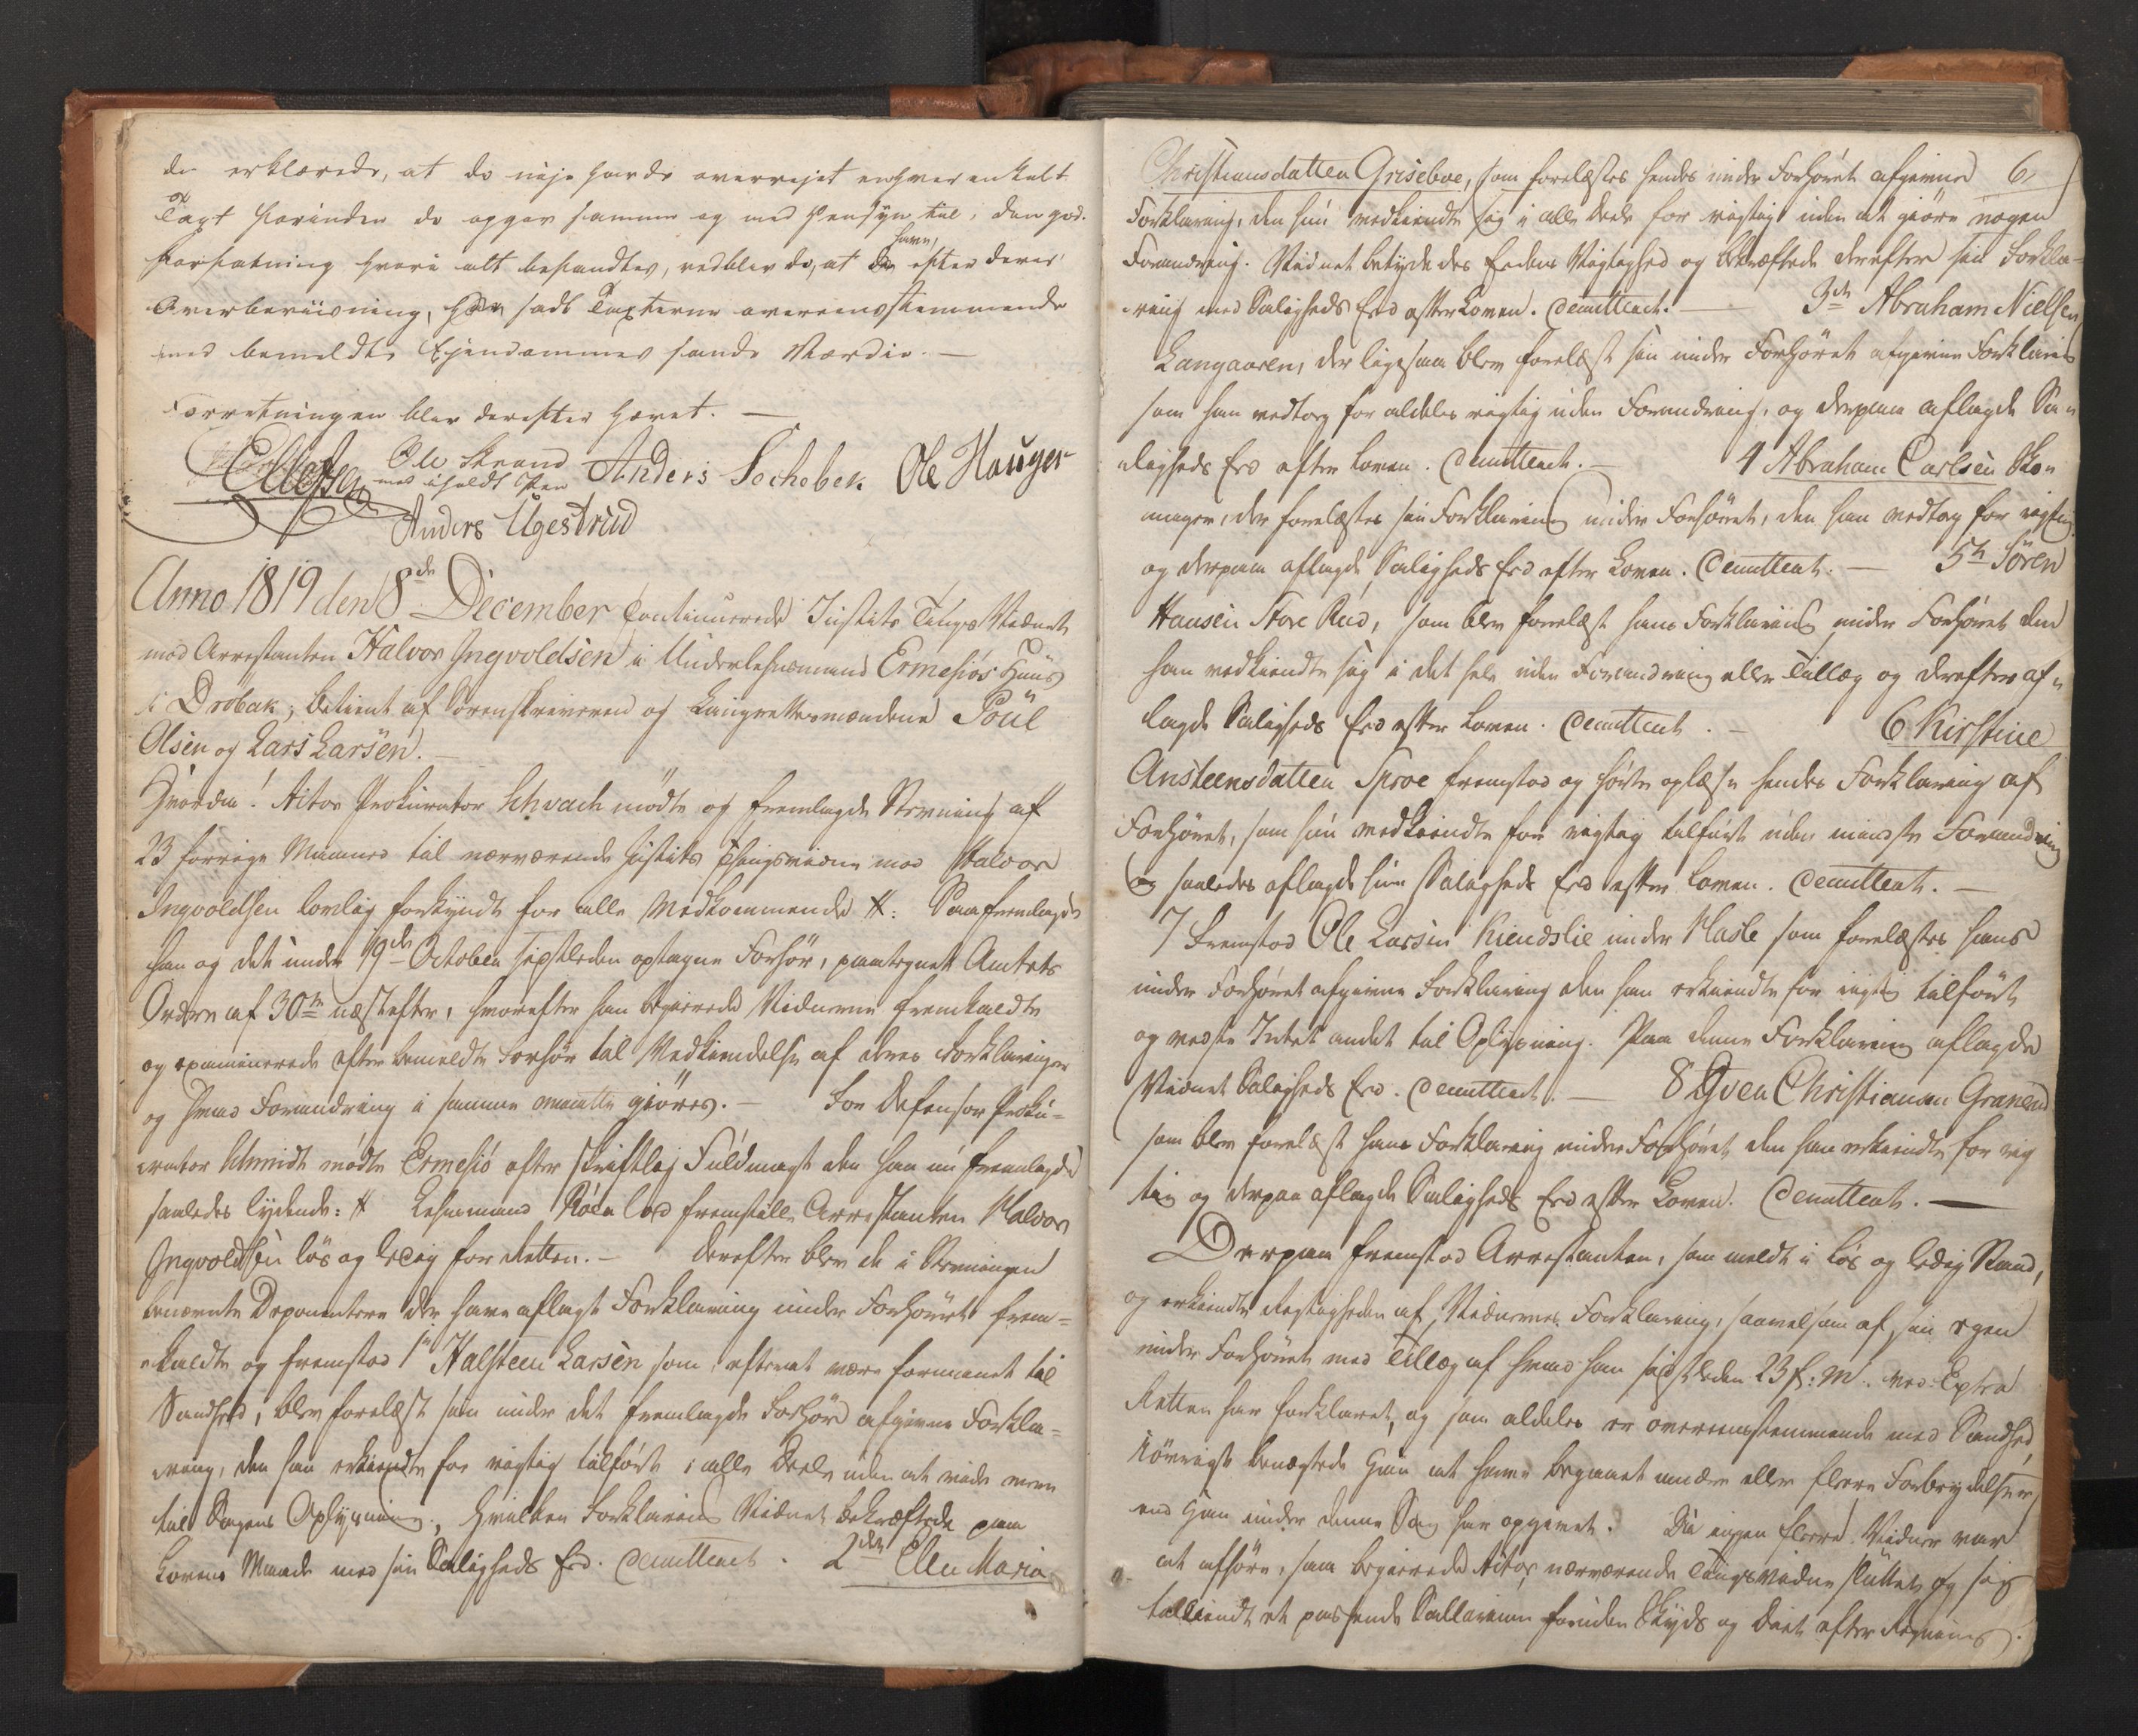 de erklærede, at de nøje havde overvejet enhver enkelt
Taxt forinden de opgav samme og med Hensyn til, den god.
Forfatning hvori alt befandtes, vedblev de, at have efter deres
Overbeviisning, sadt Taxterne overeensstemmende
med bemeldte Ejendommes sande Værdie. —
Forretningen blev derefter hævet. —
Ole Strand Anders Sechebek Ole Hauger
med iholdt Pen
Anders Ugestrud
Anno 1819 den 8de December Continuerede Justits Tings Vidnet
mod Arrestanten Halvor Ingvoldsen i Underlehnsmand Ermesiøs Huus
i Drøbak; betient af Sorenskriveren og Laugrettesmændene Poul
Olsen og Lars Larsen. —
Hvorda! Actor Prokurator Schwach mødte og fremlagde Stevning af
23 forrige Maaned til nærværende Justits Thingsvidne mod Halvor
Ingvoldsen lovlig forkyndt for alle Vedkommende #: Saa fremlagde
han og det under 19de October sidstleden optagne Forhør, paategnet Amtets
Ordre af 30te næstefter, hvorefter han begierede Vidnerne fremkaldte
og examinerede efter bemeldte Forhør til Vedkiendelse af deres Forklaringer
og hvad Forandring i samme maatte giöres. — For Defensor Proku=
rator Schmidt mødte Ermesiø efter skriftlig Fuldmagt den han nu fremlagde
saaledes lydende: # Lehnsmand lod fremstille Arrestanten Halvor
Ingvoldsen løs og ledig for Retten. — Derefter blev de i Stevningen
benævnte Deponentere der have aflagt Forklaring under Forhøret frem=
kaldte og fremstod 1ste Halsteen Larsen som, efterat være formanet til
Sandhed, blev forelæst sin under det fremlagde Forhør afgivne Forkla=
ring, den han erkiendte for rigtig tilført i alle Deele uden at vide mere
til Sagens Oplysning, hvilken Forklaring Vidnet bekræftede paa
Lovens Maade med sin Saligheds Eed. demitteret. 2den Ellen Maria
Christiansdatter Griseboe, som forelæstes hendes under Forhøret afgivne 6
Forklaring, den hun vedkiendte sig i alle Deele for rigtig uden at giøre nogen
Forandring. Vidnet betydedes Eedens Vigtighed og bekræftede derefter sin Forkla=
ring med Saligheds Eed efter Loven. demitteret. — 3de Abraham Nielsen
Langaaren, der ligesaa blev forelæst sin under Forhøret afgivne Forklaring
som han vedtog for aldeles rigtig uden Forandring, og derpaa aflagde Sa=
ligheds Eed efter Loven. demitteret. — 4 Abraham Carlsen Sko=
mager, der forelæstes sin Forklaring under Forhøret, den han vedtog for rigtig
og derpaa aflagde Saligheds Eed efter Loven. demitteret. — 5te Søren
Hansen Store Rud, som blev forelæst hans Forklaring under Forhøret den
han vedkiendte sig i det hele uden Forandring eller Tillæg og derefter af=
lagde Saligheds Eed efter Loven. demitteret. — 6 Kirstine
Ansteensdatter Sproe fremstod og hørte oplæse hendes Forklaring af
Forhøret, som hun vedkiendte for rigtig tilført uden mindste Forandring
og saaledes aflagde sin Saligheds Eed efter Loven. demitteret. —
7 Fremstod Ole Larsen Kiendslie under Hasle som forelæstes hans
under Forhøret afgivne Forklaring den han erkiendte for rigtig tilført
og vedste Intet andet til Oplysning. Paa denne Forklaring aflagde
Vidnet Saligheds Eed. demitteret. — 8 Sven Christiansen Granerud
som blev forelæst hans Forklaring under Forhøret den han erkiendte for rig
tig og derpaa aflagde Saligheds Eed efter Loven. demitteret. —
Derpaa fremstod Arrestanten, som meldt i løs og ledig Stand,
og erkiendte Rigtigheden af Vidnernes Forklaring, saavelsom af sin egen
under Forhøret med Tillæg af hvad han sidstleden 23 f: M: ved Extra
Retten har forklaret, og som aldeles er overeensstemmende med Sandhed,
iøvrigt benægtede han at have begaaet andre eller flere Forbrydelser
end han under denne Sag har opgivet. Da ingen flere Vidner var
at afhøre, saa begierede Actor nærværende Tingsvidne sluttet og sig
tilkiendt et passende Sallarium foruden Skyds og Diæt efter Regning.